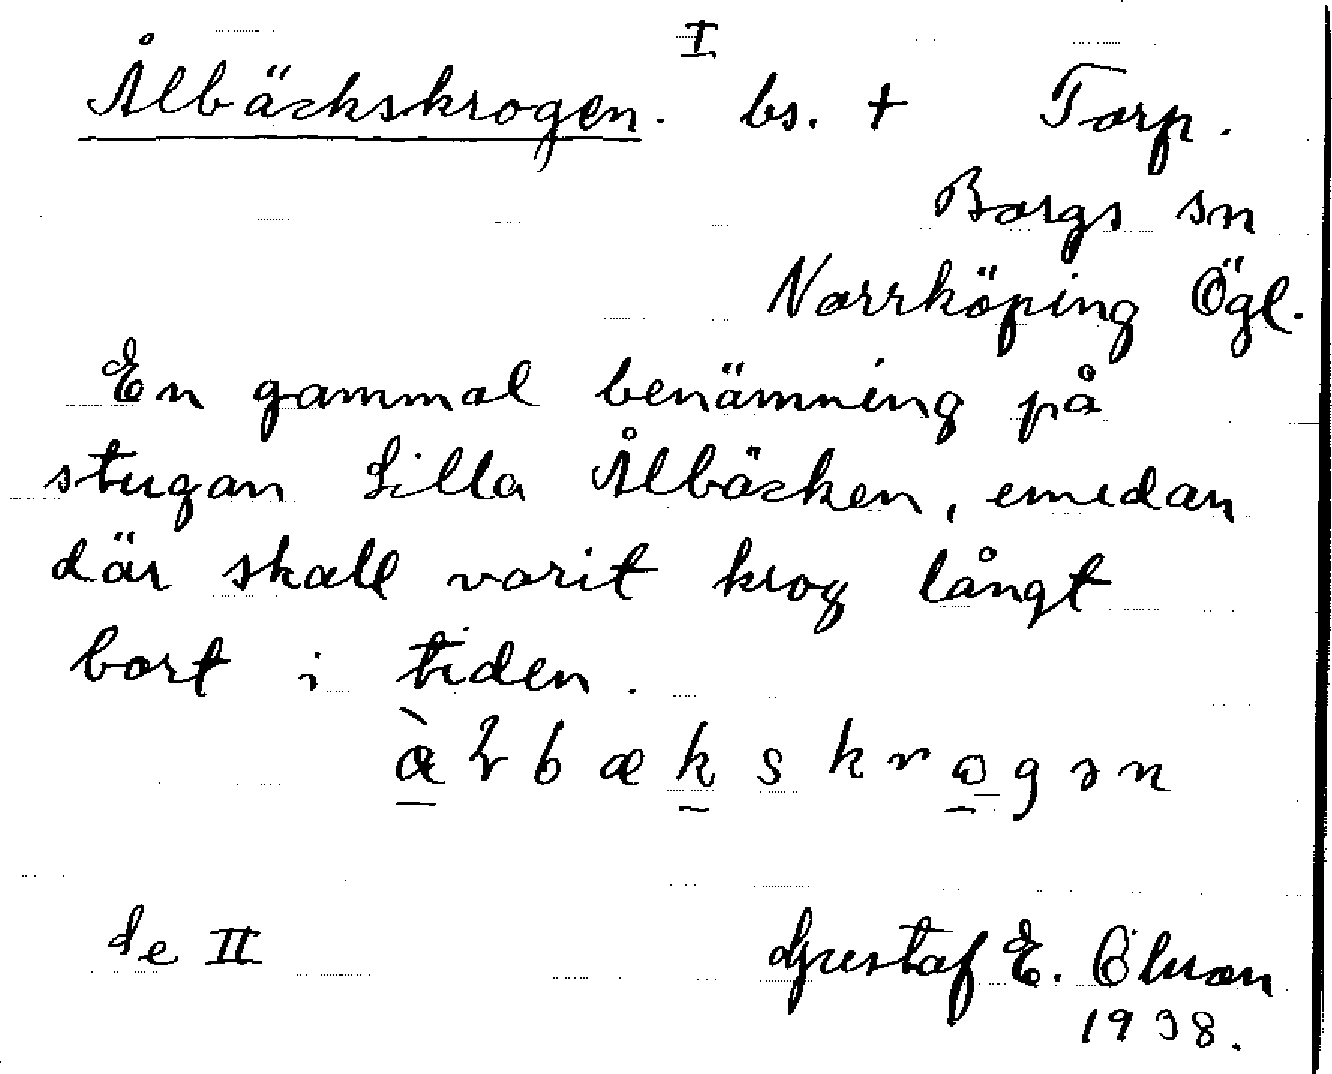 I
Ålbäckskrogen. bs. + Torp.
Borgs sn
Norrköping Ögl.
En gammal benämning på
stugan Lilla Ålbäcken, emedan
där skall varit krog långt
bort i tiden.
de II
Gustaf E.
1938.